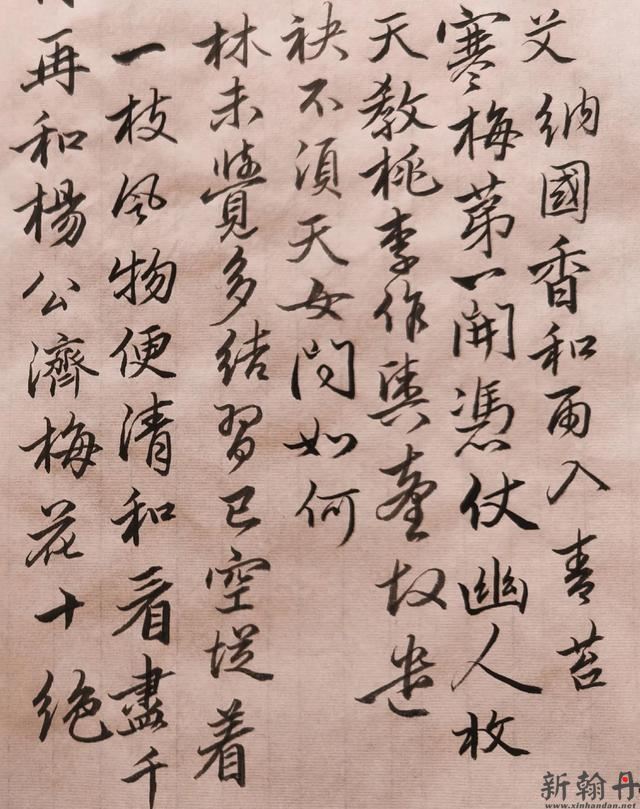 艾納國香和雨入青苔
寒梅第一開憑仗幽人收
天教桃李作輿臺故遣
袂不須天女問如何
林未覺多結習已空從着
一枝風物便清和看盡千
再和楊公濟梅花十絕
新翰丹
www.xinhandan.net